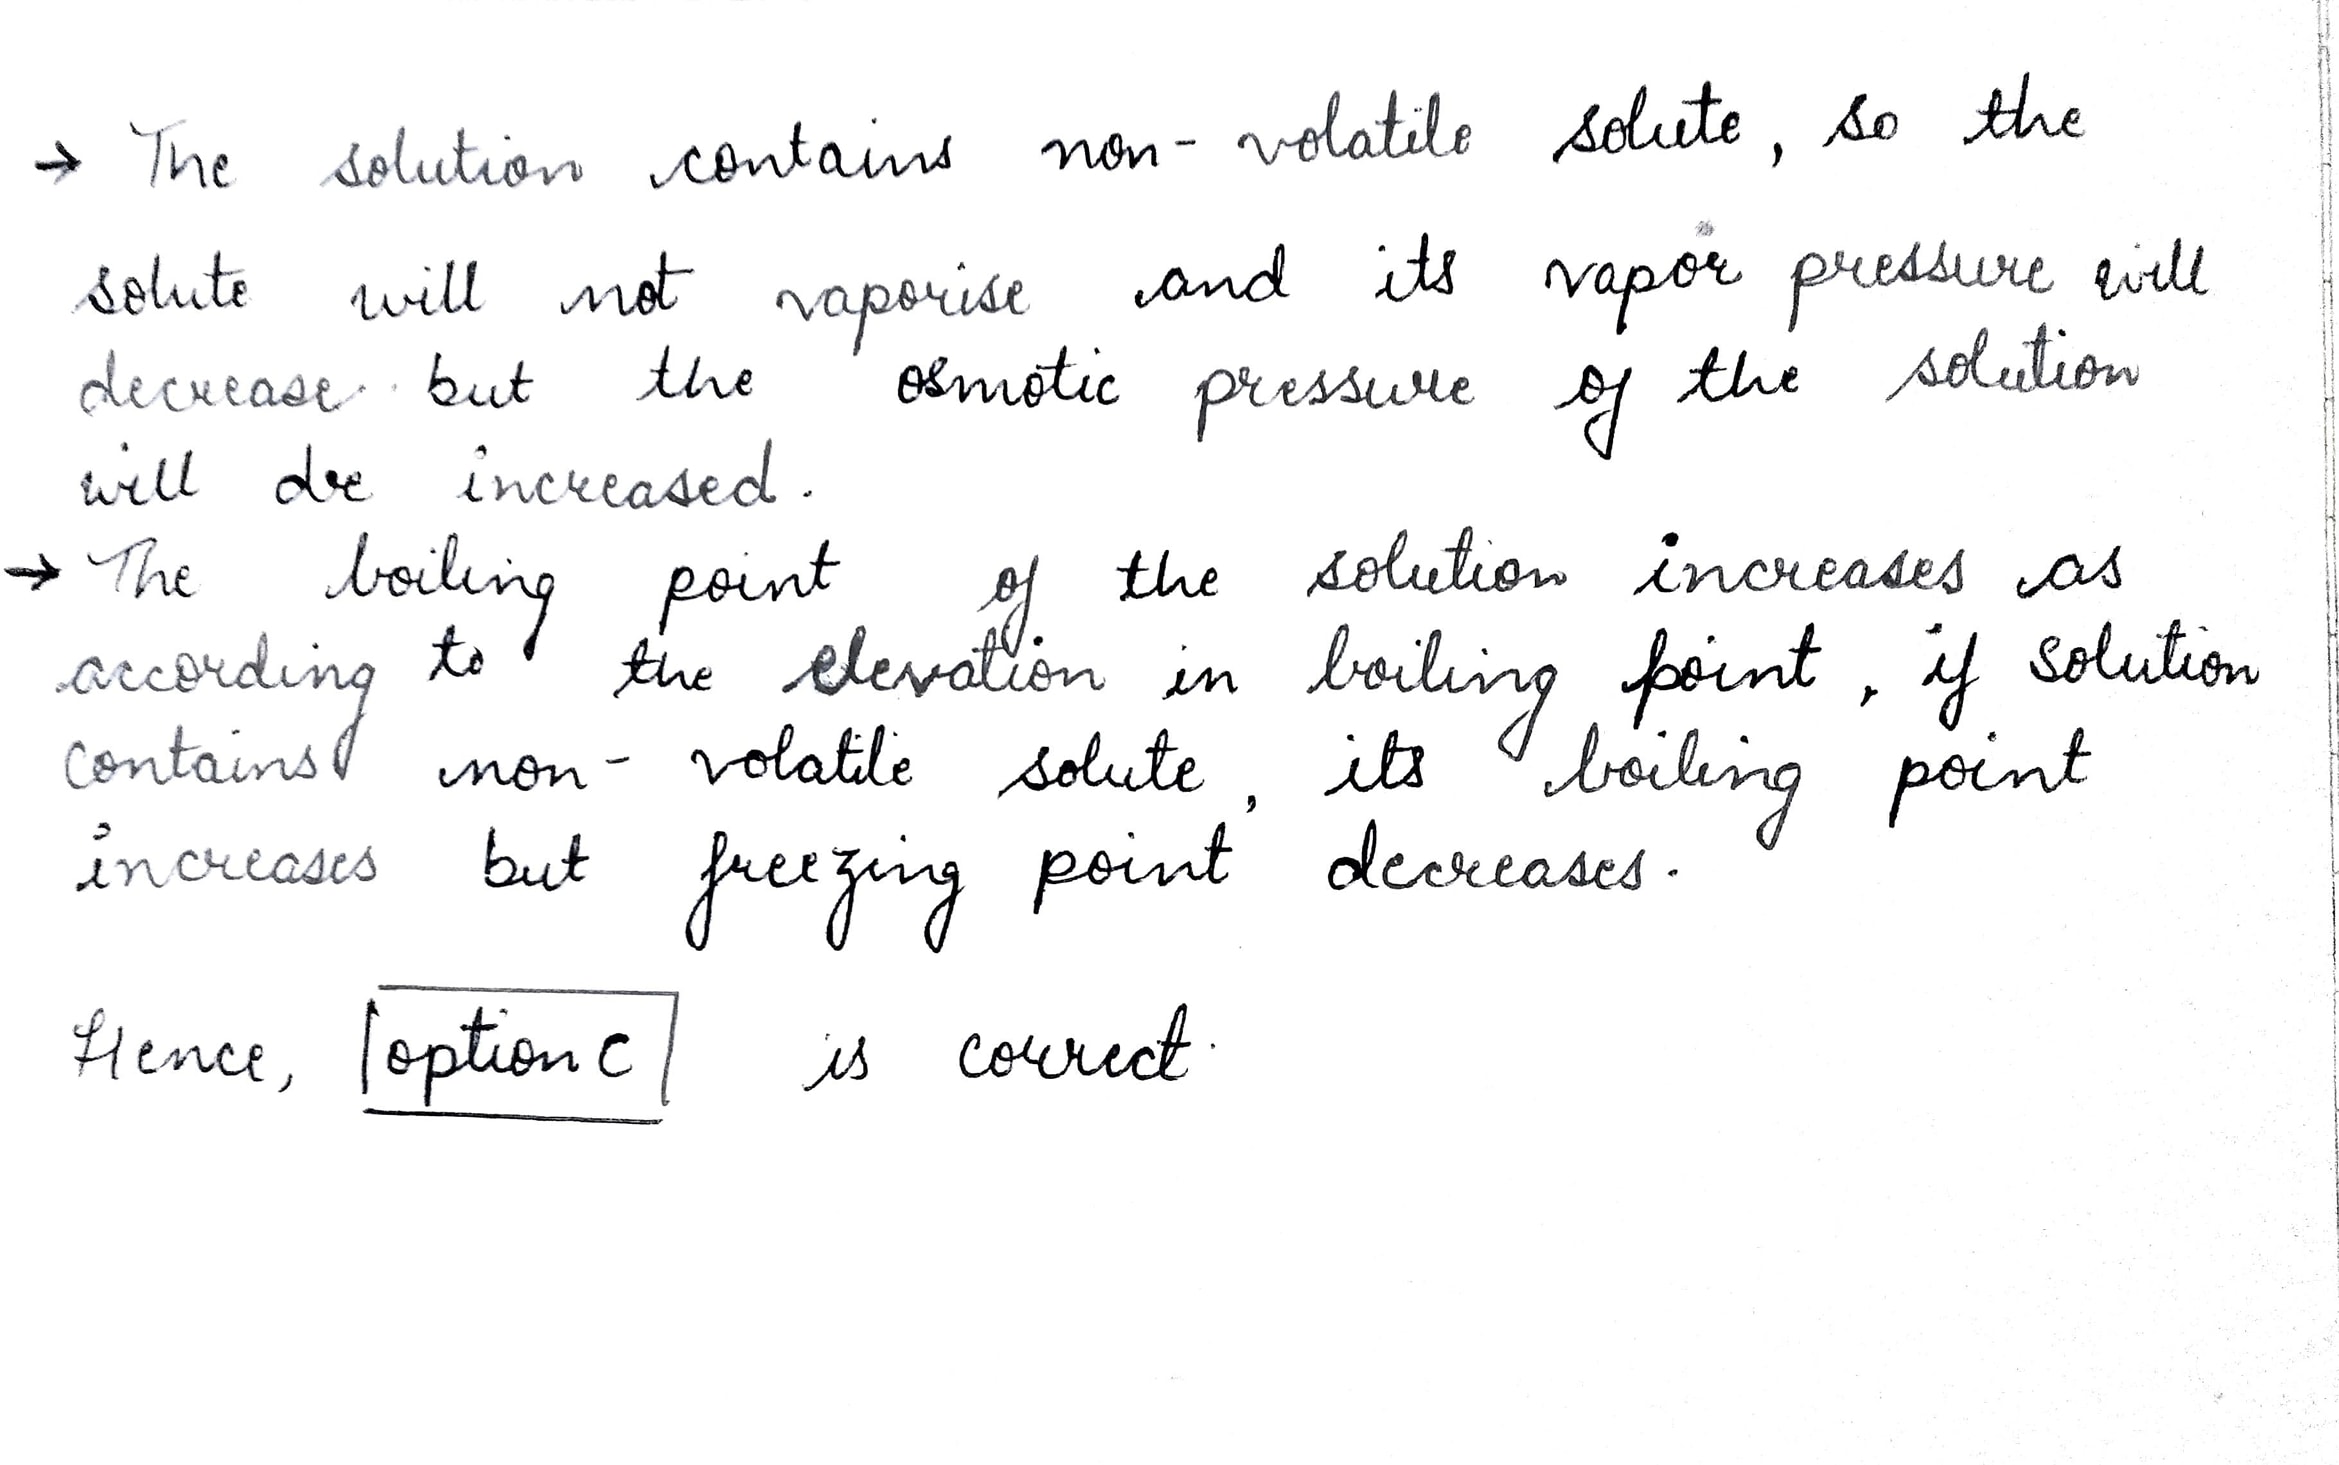 → The solution contains non-volatile solute, so the
solute will not vaporise and its vapor pressure will
decrease but the osmotic pressure of the solution
will be increased.
→ The boiling point of the solution increases as
according to the elevation in boiling point, if solution
contains non-volatile solute, its boiling point
increases but freezing point decreases.
Hence, option C is correct.